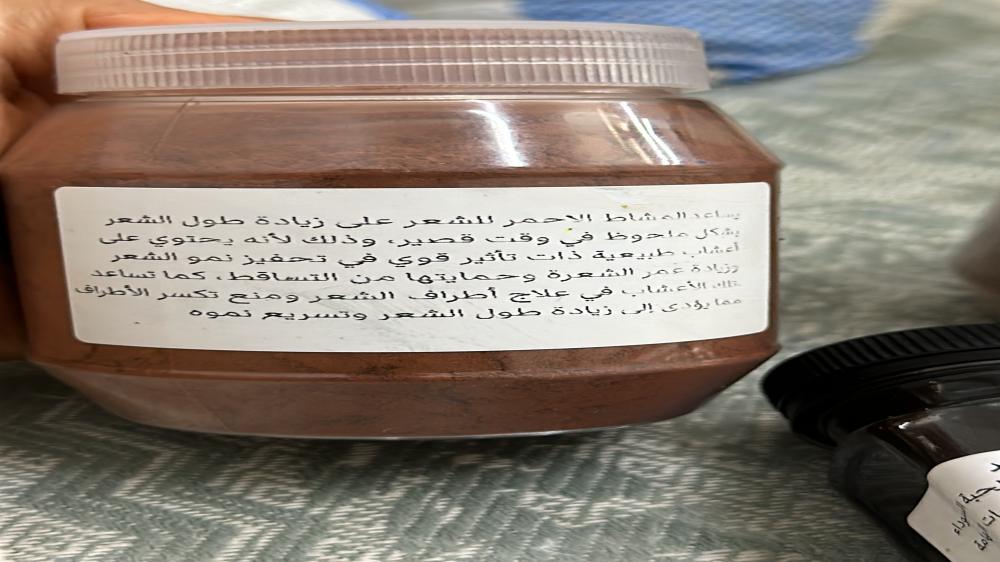 يساعد المشاط الاحمر للشعر على زيادة طول الشعر
بشكل ملحوظ في وقت قصير، وذلك لأنه يحتوي على
أعشاب طبيعية ذات تأثير قوي في تحفيز نمو الشعر
وزيادة عمر الشعرة وحمايتها من التساقط، كما تساعد
تلك الأعشاب في علاج أطراف الشعر ومنع تكسر الأطراف
مما يؤدى إلى زيادة طول الشعر وتسريع نموه